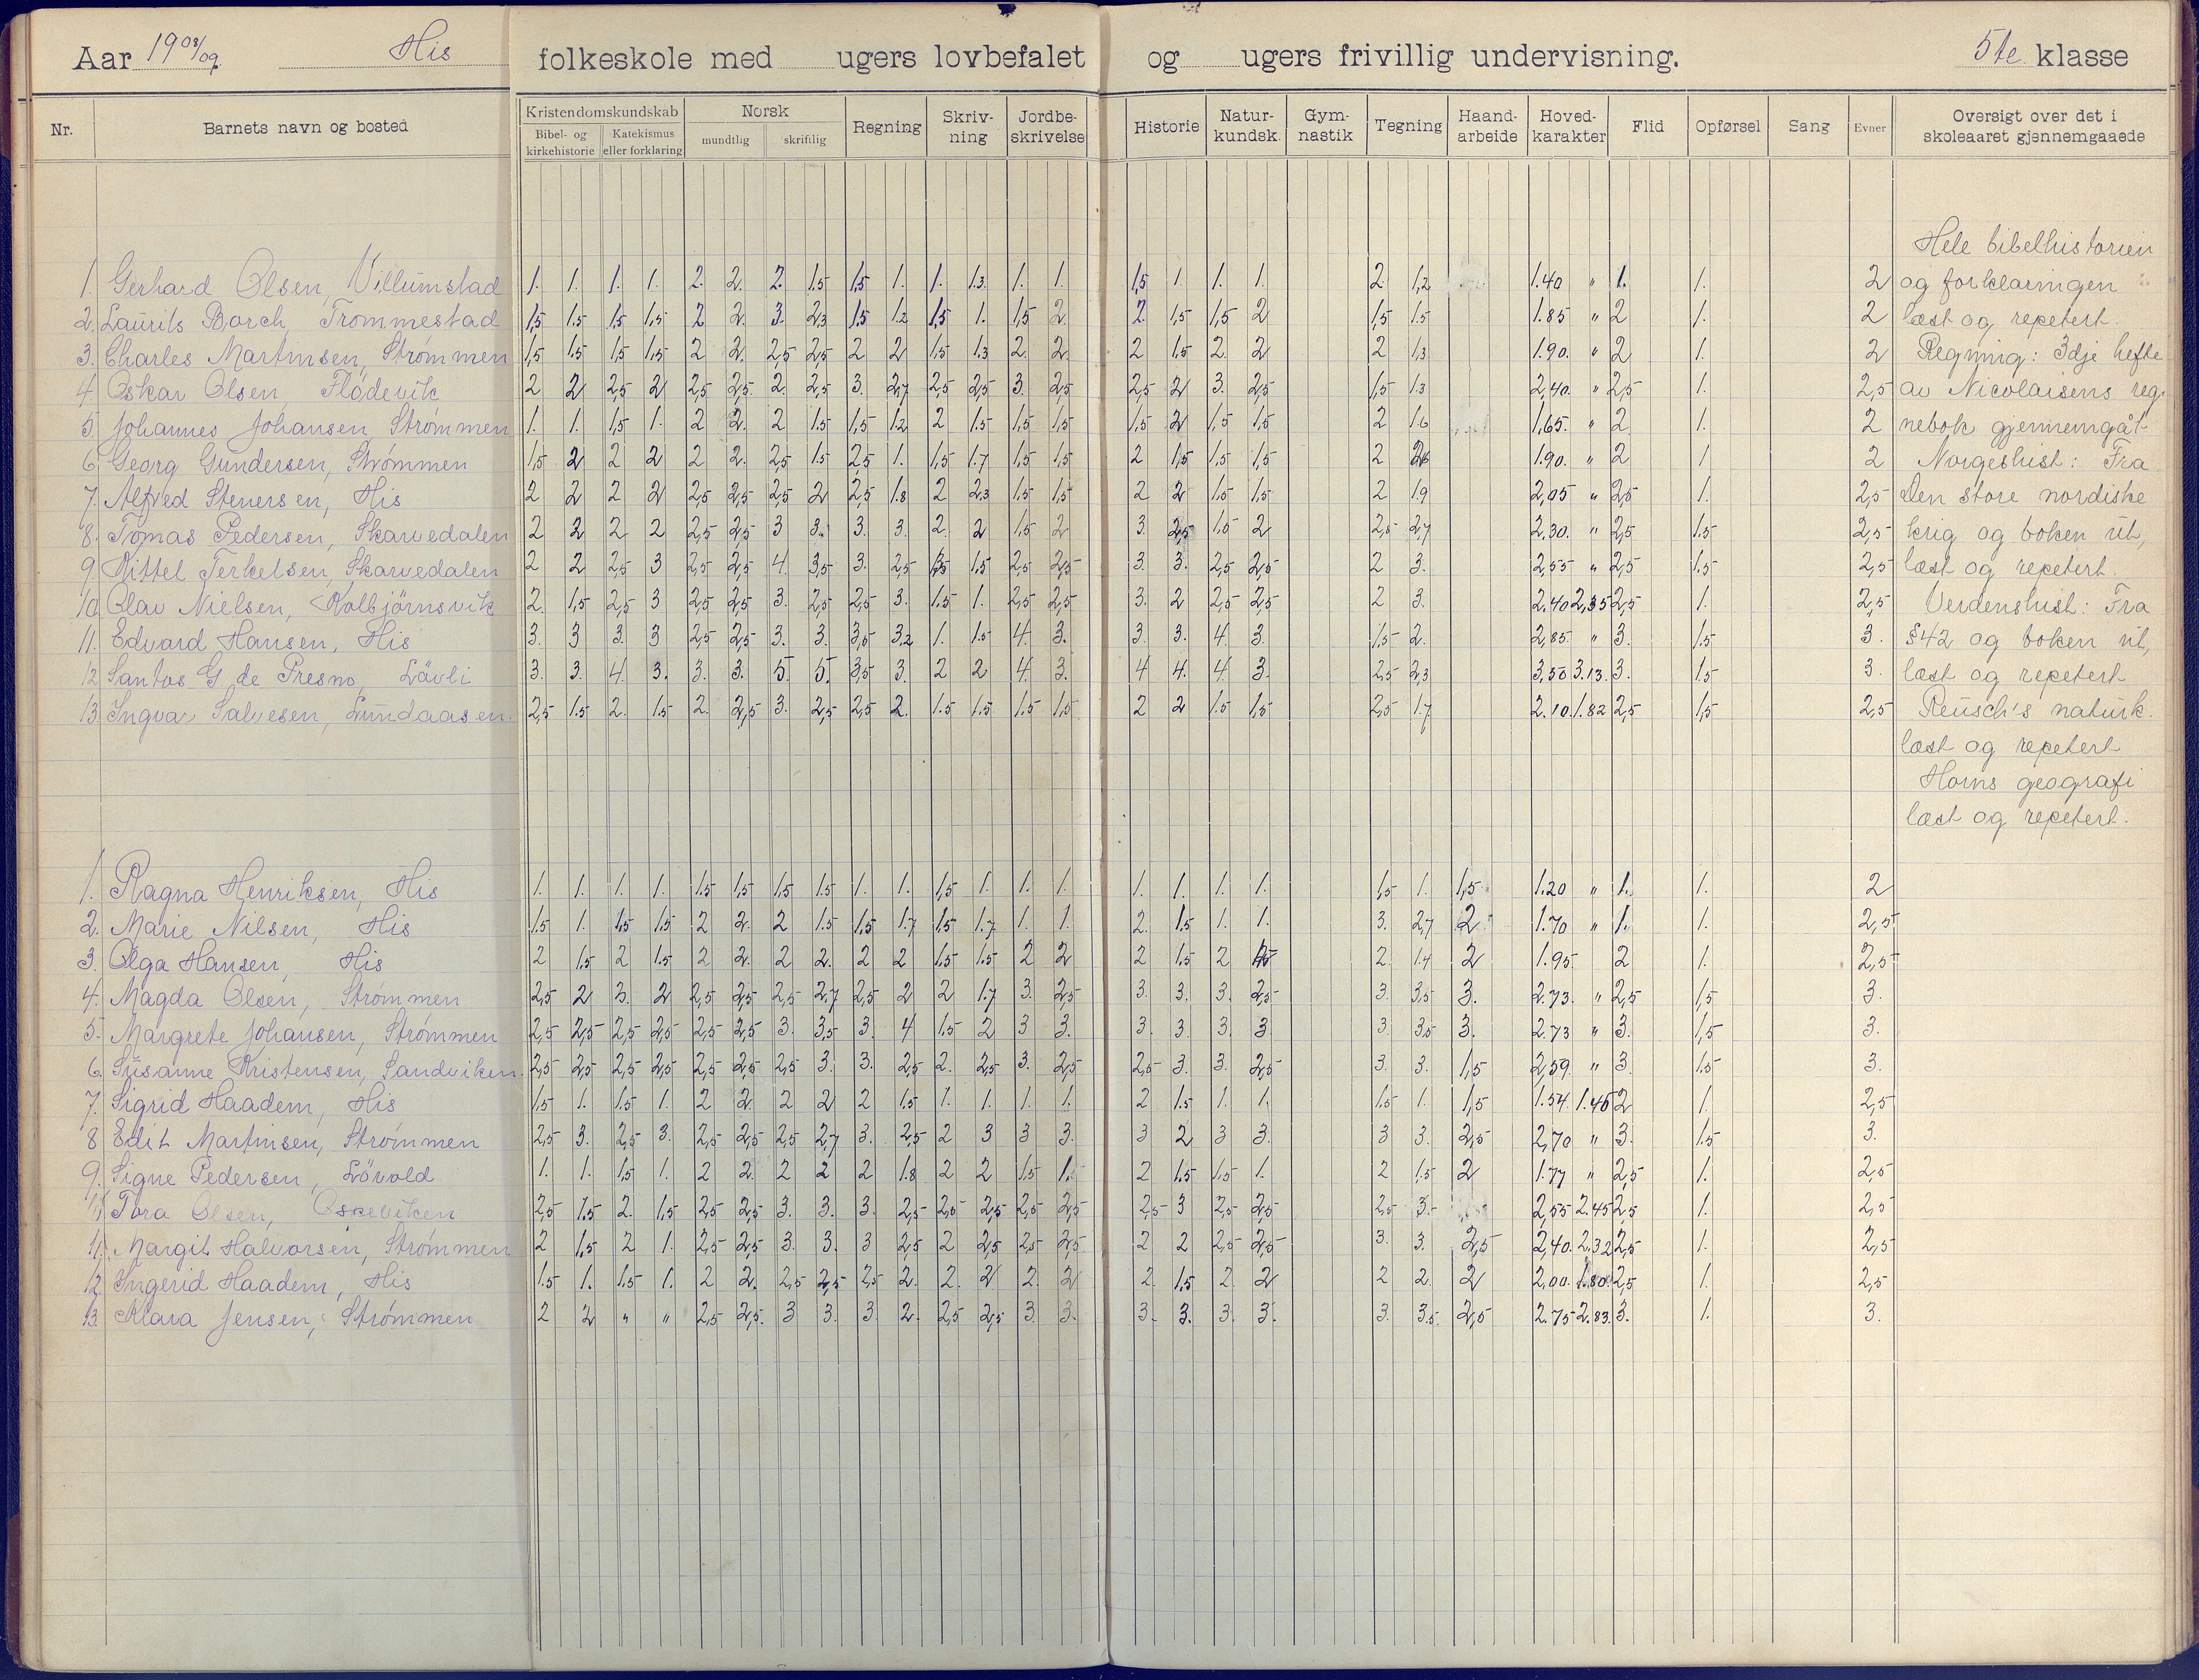 Aar 1908/09 His folkeskole med ugers lovbefalet og ugers frivillig undervisning. 5te klasse
Nr. Barnets navn og bosted Kristendomskundskab Bibel- og kirkehistorie Katekismus eller forklaring Norsk mundtlig skriftlig Regning Skriv-ning Jordbe-skrivelse Historie Natur-kundsk. Gym-nastik Tegning Haand-arbeide Hoved-karakter Flid Opførsel Sang Evner Oversigt over det i skoleaaret gjennemgaaede
Hele bibelhistorien
1. Gerhard Olsen, Villumstad 1. 1. 1. 1. 2. 2. 2. 1.5 1,5 1. 1. 1.3. 1. 1. 1,5 1. 1. 1. 2 1,2 1.40 " 1. 1. 2 og forklaringen
2. Laurits Borch, Trommestad 1,5 1.5 1.5 1,5 2 2. 3. 2,3 1.5 1.2 1,5 1. 1,5 2. 2. 1,5 1,5 2 1,5 1.5 1.85 " 2 1. 2 læst og repetert.
3. Charles Martinsen, Strømmen 1,5 1.5 1,5 1,5 2 2. 2,5 2,5 2 2 1.5 1.3 2. 2. 2 1.5 2. 2 2 1,3 1.90. " 2 1. 2 Regning: 3dje hefte
4. Oskar Olsen, Flödevik 2 2 2,5 2 2,5 2,5. 2. 2,5 3. 2,7 2,5 2,5 3. 2,5 2,5 2 3. 2,5 1,5 1.3 2,40. " 2,5 1. 2,5 av Nicolaisens reg.
5. Johannes Johansen Strømmen 1. 1. 1,5 1. 2 2. 2 1.5 1,5 1.2 2 1.5 1,5 1,5 1,5 2 1,5 1,5 2 1.6 1,65. " 2 1. 2 nebok gjennemgåt
6. Georg Gundersen, Strømmen 1,5 2 2 2 2 2. 2,5 1.5 2,5 1. 1,5 1.7 1,5 1,5 2 1,5 1,5 1,5 2 1.90. " 2 1 2 Norgeshist: Fra
7. Alfred Stenersen, His 2 2 2 2 2,5 2,5 2,5 2 2,5 1.8 2 2,3 1,5 1,5 2 2 1.5 1,5 2 1.9 2,05 " 2,5 1. 2,5 Den store nordiske
8. Tomas Pedersen, Skarvedalen 2 2 2 2 2,5 2,5 3 3. 3. 3. 2. 2 1.5 2 3. 2,5 1.5 2 2,5 2,7 2.30. " 2,5 1.5 2,5 krig og boken ut,
9. Kittel Terkelsen, Skarvedalen 2 2 2,5 3 2,5 2,5 4. 3,5 3. 2,5 1,5 2,5 2,5 3. 3. 2,5 2,5 2 3. 2,55 " 2,5 1.5 2,5 læst og repetert.
10. Olav Nielsen, Kolbjörnsvik 2. 1,5 2,5 3 2,5 2,5 3. 2,5 2,5 3. 1.5 1. 2,5 2,5 3. 2 2,5 2,5 2 3. 2.40 2,35 2,5 1. 2,5 Verdenshist: Fra
11. Edvard Hansen, His 3. 3 3. 3 2,5 2,5 3. 3. 3,5 3,2 1. 1.5 4. 3. 3. 3. 4. 3. 1,5 2. 2,85 " 3. 1.5 3. §42 og boken ut,
12. Santos G de Presno, Lövli 3. 3. 4. 3. 3. 3. 5. 5. 3,5 3. 2 2 4. 3. 4 4. 4. 3. 2,5 2,3 3,50 3.13. 3. 1.5 3. læst og repetert
13. Ingvar Salvesen, Lundaasen. 2,5 1.5 2. 1.5 2. 2,5 3. 2,5 2,5 2. 1.5 1.5 1.5 1,5 2 2 1.5 1,5 2,5 1.7 2.10. 1.82 2,5 1,5 2,5 Reusch's naturk.
læst og repetert
Horns geografi
læst og repetert.
1. Ragna Henriksen, His 1. 1. 1. 1. 1.5 1,5 1,5 1.5 1. 1. 1,5 1. 1. 1. 1. 1. 1. 1. 1,5 1. 1,5 1.20 " 1. 1. 2
2. Marie Nilsen, His 1.5 1. 1,5 1.5 2 2. 2 1.5 1,5 1.7 1.5 1.7 1. 1. 2. 1.5 1. 1. 3. 2,7 2 1.70 " 1. 1. 2,5
3. Olga Hansen, His 2 1.5 2 1.5 2 2. 2 2. 2 2 1.5 1.5 2 2 2 1.5 2 2. 1.4 2 1.95 2 1. 2,5
4. Magda Olsen, Strømmen 2,5 2 3. 2 2,5 2,5 2,5 2.7 2,5 2 2 1.7 3. 2,5 3. 3. 3. 2,5 3. 3,5 3. 2.73. " 2,5 1,5 3.
5. Margrete Johansen, Strømmen 2,5 2,5 2,5 2,5 2,5 2,5 3. 3,5 3. 4 1.5 2 3 3. 3. 3. 3. 3 3. 3.5 3. 2.73 " 3. 1,5 3.
6. Susanne Kristensen, Sandviken. 2,5 2,5 2,5 2,5 2,5 2,5 2,5 3. 3. 2,5 2. 2,5 3. 2,5 2,5 3. 3. 2,5 3. 3. 1,5 2,59. " 3. 1.5 3.
7. Sigrid Haadem, His 1.5 1. 1.5 1. 2 2. 2 2 2 1.5 1. 1. 1. 1. 2 1.5 1. 1. 1.5 1. 1,5 1.54. 1.46 2 1. 2,5
8 Edit Martinsen, Strømmen 2,5 3. 2,5 3. 2,5 2,5 2,5 2,7 3. 2,5 2 3 3 3. 3 2 3 3. 3 3. 2,5 2,70 " 3. 1.5 3.
9. Signe Pedersen, Lövold 1. 1. 1.5 1. 2 2. 2 2 2 1.8 2 2 1,5 1. 2 1.5 1,5 1. 2 1,5 2 1.77 " 2,5 1. 2,5
Tora Olsen, Ospeviken 2,5 1.5 2. 1,5 2,5 2,5 3. 3. 3. 2,5 2,5 2,5 2,5 2,5 2,5 3 2,5 2,5 2,5 3. 2,55 2.45 2,5 1. 2,5
11. Margit Halvorsen, Strømmen 2 1,5 2 1. 2,5 2,5 3. 3. 3 2,5 2 2,5 2,5 2,5 2 2 2,5 2,5 3. 3. 2,5 2,40. 2.32 2,5 1. 2,5
12. Ingerid Haadem, His 1.5 1. 1.5 1. 2 2. 2,5 2,5 2,5 2. 2. 2 2. 2 2. 1,5 2. 2 2 2. 2 2,00. 1.80. 2,5 1. 2,5
13. Klara Jensen, Strømmen 2 2 " " 2,5 2,5. 3 3. 3. 2. 2,5 2,5 3. 3. 3. 3. 3. 3. 3. 3.5. 2,5 2.75 2.83. 3. 1. 3.